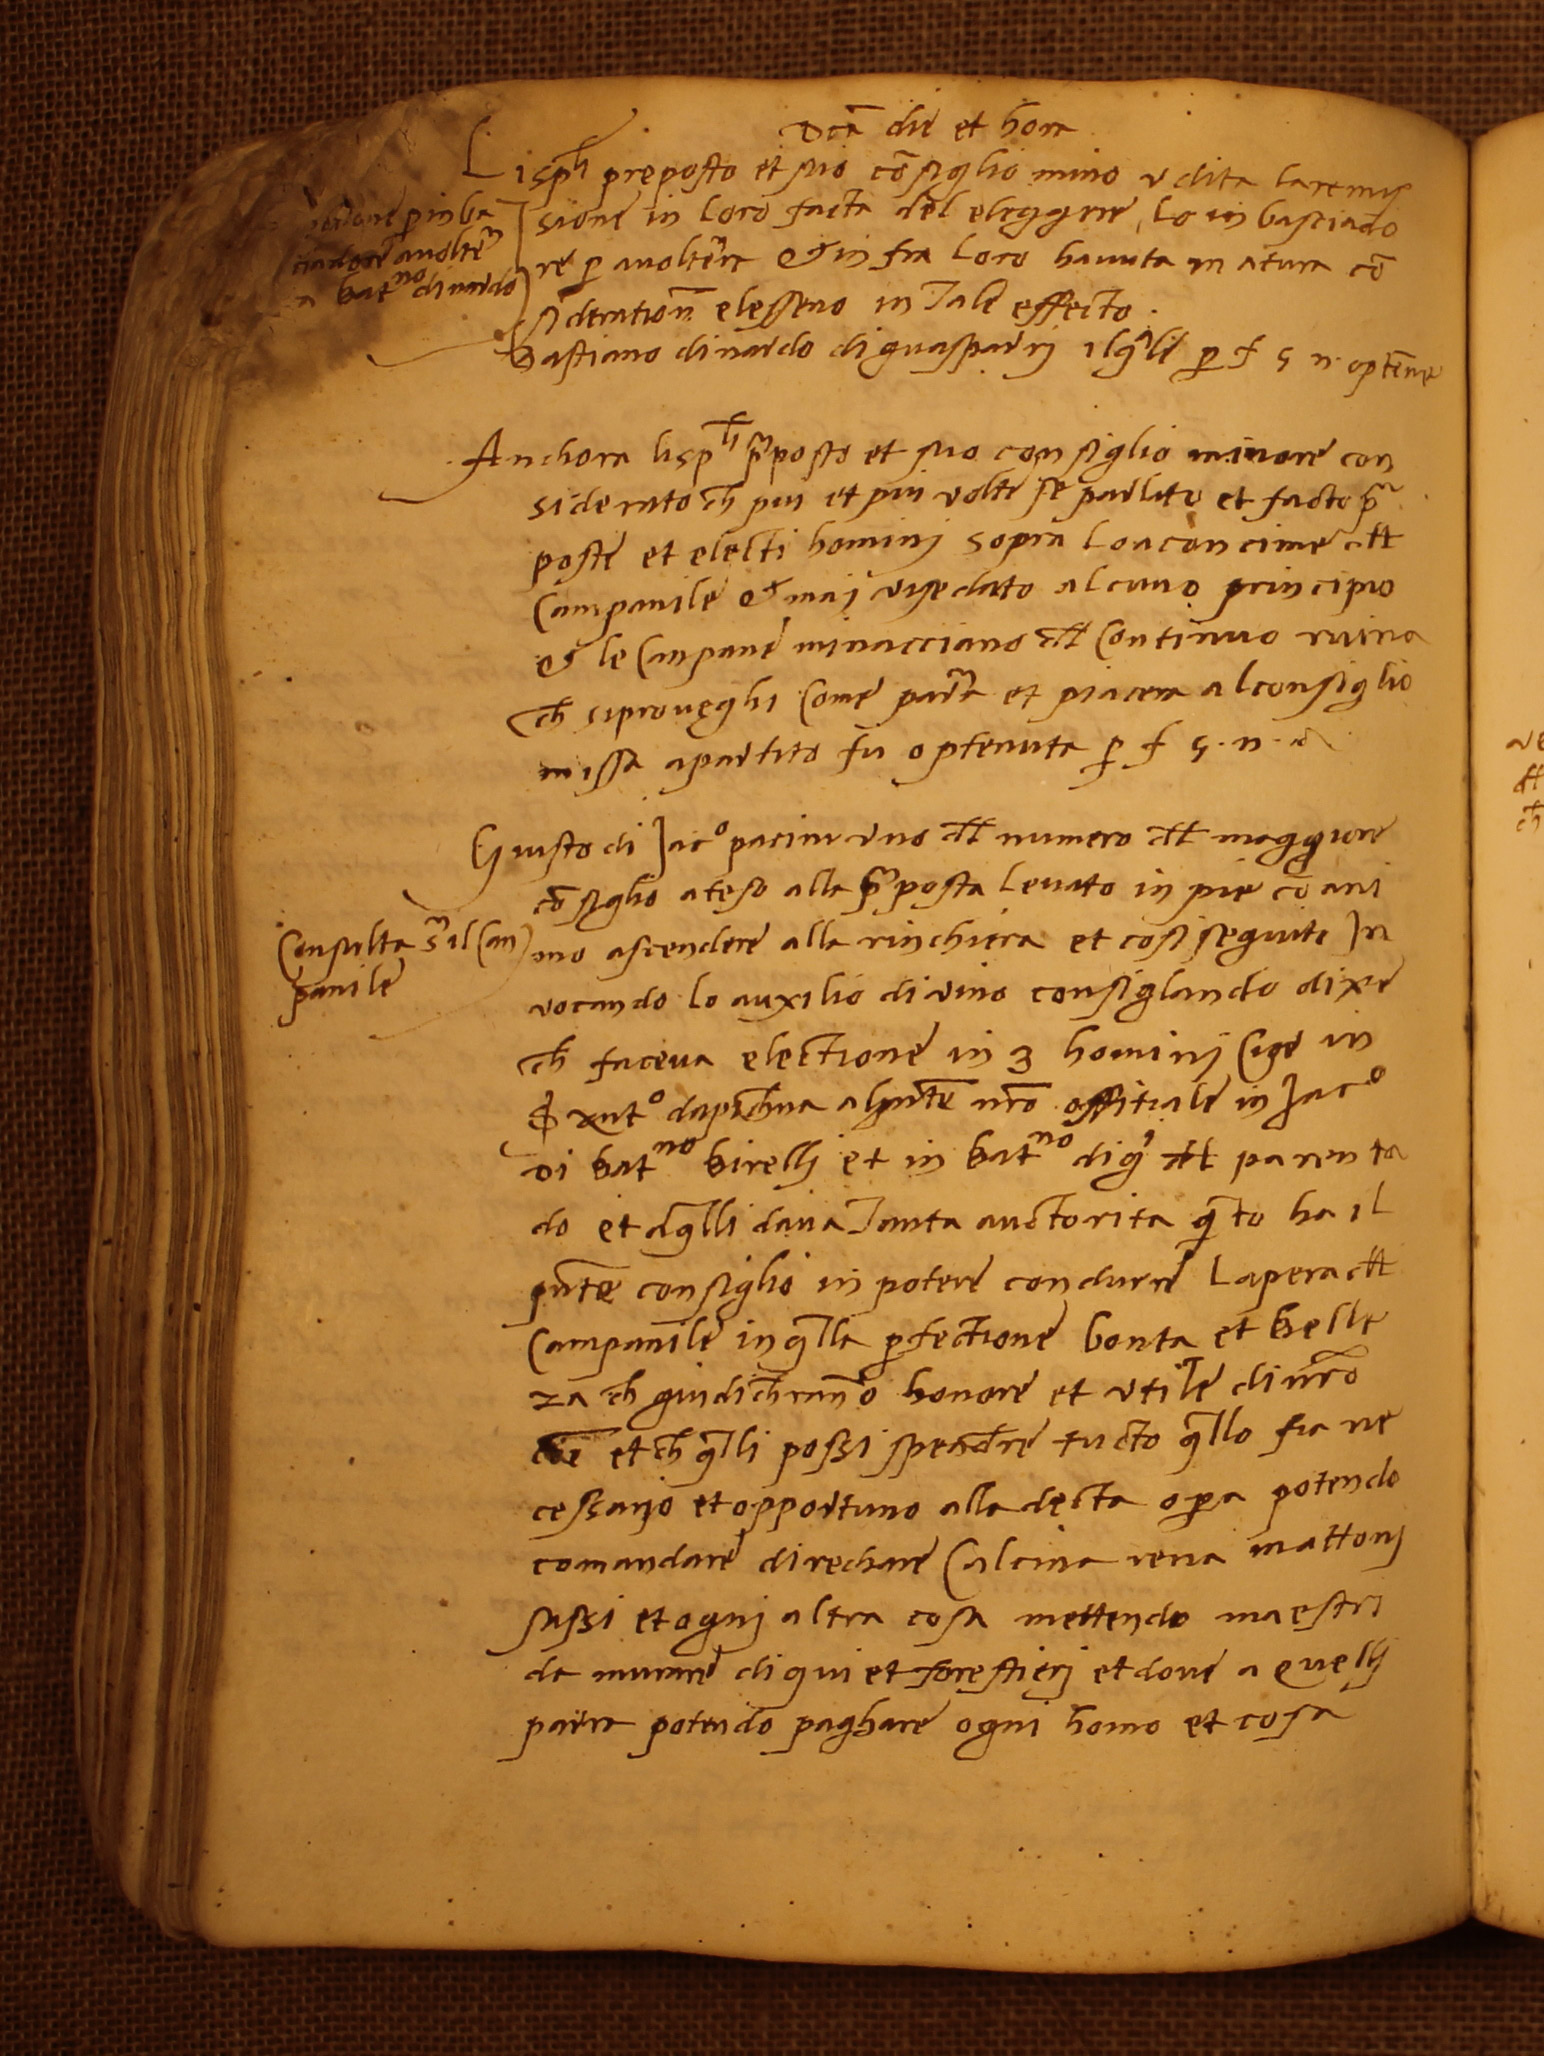 dcta die et hora
Li spli preposto et suo cosiglio mino udita la remis
sione in loro facta del eleggere lo inbasciado
re p avolterra et in fra loro havuta matura co
sideratione elesseno in tale effecto.
Bastiano di nardo di guasparrj il qle p f 5 n. optene
p inba
ciadore avolterr
a batno di nardo
Anchora li spli pposto et suo consiglio minore con
siderato ch piu et piu volte se parlato et facto p
poste et electi hominj sopra lo aconcime dll
Campanile et maj vi se dato alcuno principio
et le Canpane minacciano dll Continuo ruina
ch si proveghi Come parra et piacera al consiglio
missa apartito fu optenuta p f 5. n.
Giusto di Jaco pacini uno dll numero dll maggiore
cosiglio ateso alla pposta levato in pie co ani
mo ascendere alla rinchiera et cosi seguite In
vocando lo auxilio divino consiglando dixe
ch faceva electione in 3 hominj Cioe in
dapischua al pnte nro offitiale in Jaco
di batno birellj et in batno di dll parenta
do et a qlli dava Tanta auctorita qto ha il
pnte consiglio in potere condurre lapera dll
Campanile in qlla pfectione bonta et belle
za ch giudichranno honore et utile di nro
coe et ch qlli possi spendre tucto qllo fia ne
cessarjo et opportuno alla decta opa potendo
comandare di rechare Calcina rena mattonj
sassi et ognj altra cosa mettendo maestri
da murare di qui et forestierj et dove a quellj
parra potendo paghare ogni homo et cosa
Consulta s il Can
panile